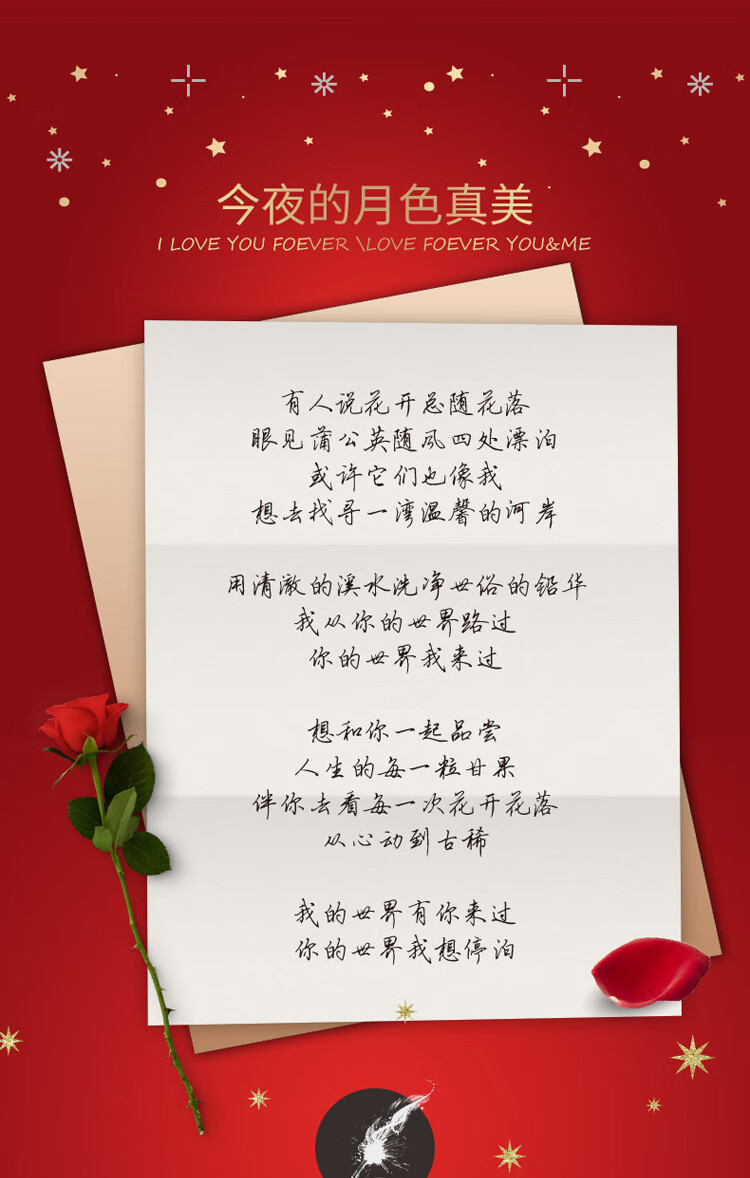 今夜的月色真美
I LOVE YOU FOEVER \LOVE FOEVER YOU&ME
有人说花开总随花落
眼见蒲公英随风四处漂泊
或许它们也像我
想去找寻一湾温馨的河岸
用清澈的溪水洗净世俗的铅华
我从你的世界路过
你的世界我来过
想和你一起品尝
人生的每一粒甘果
伴你去看每一次花开花落
从心动到古稀
我的世界有你来过
你的世界我想停泊